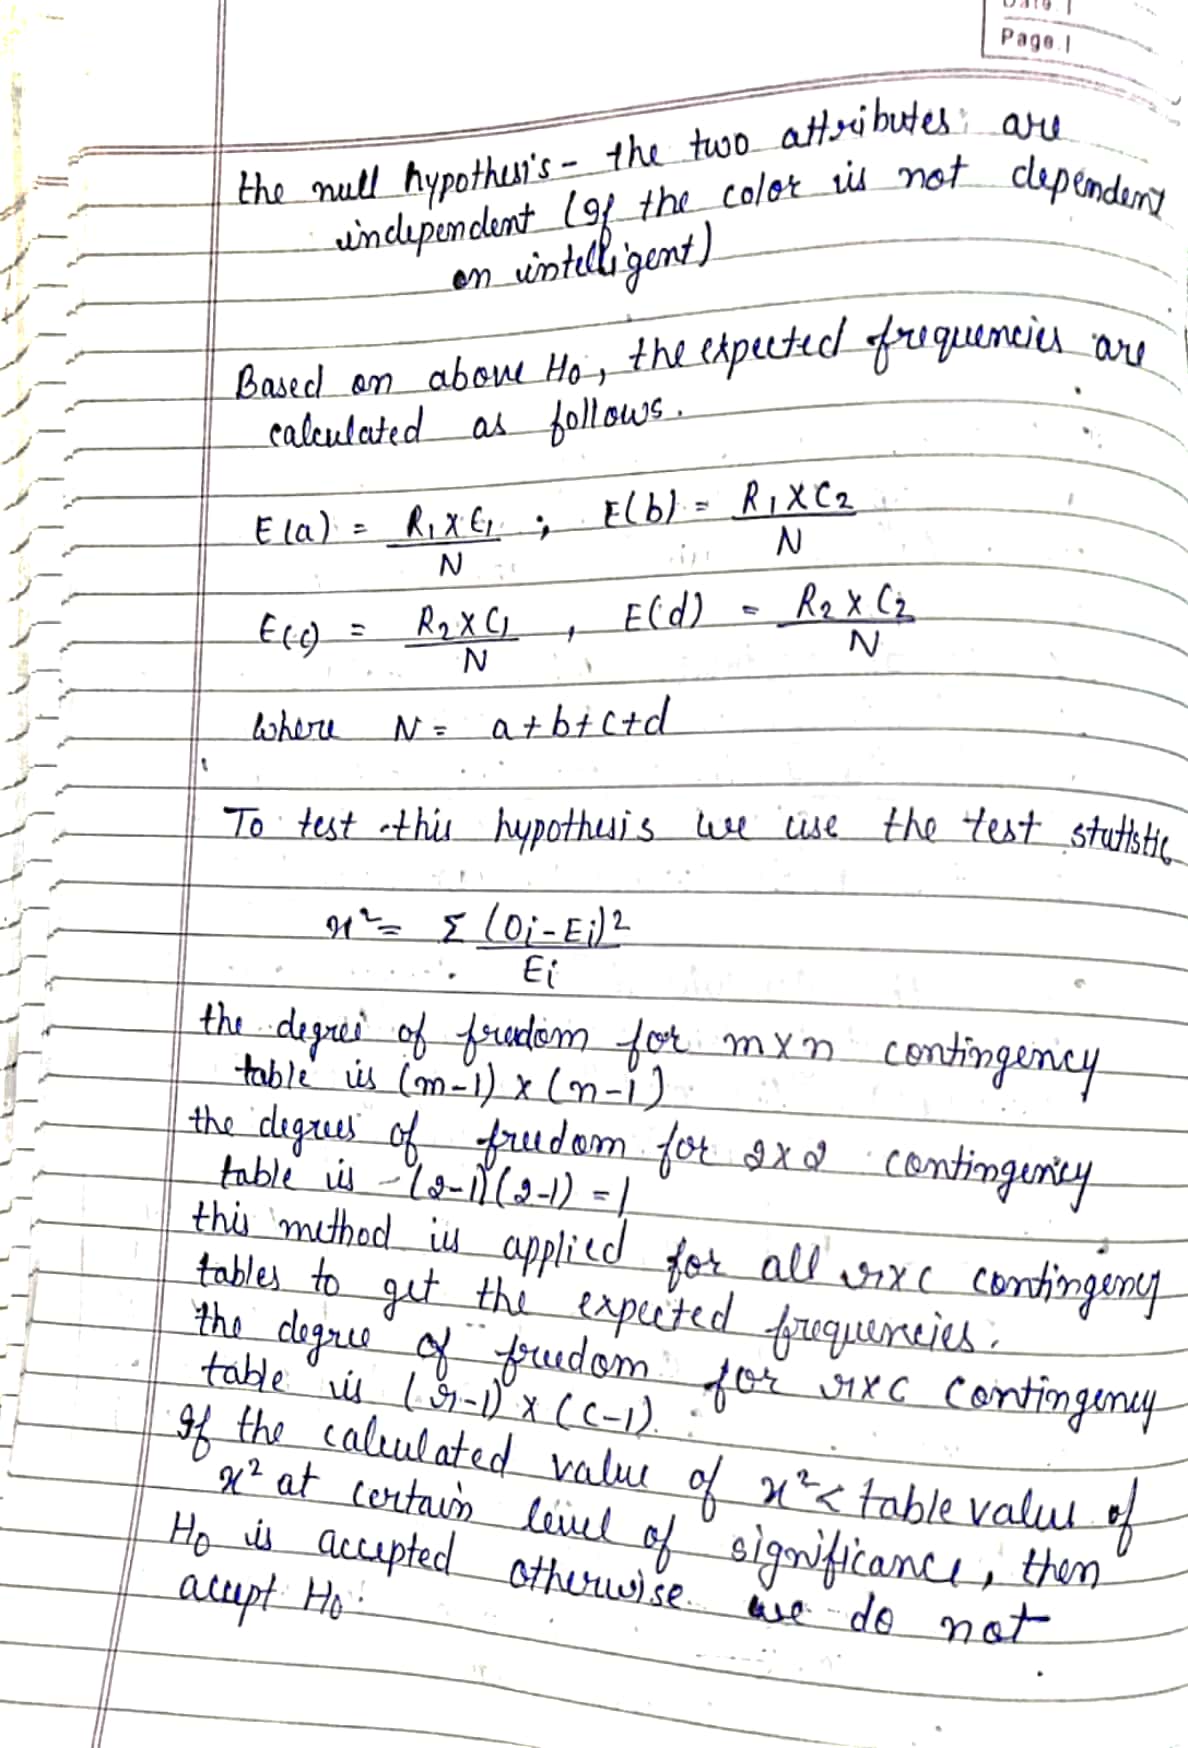 Page.
the null hypothesis - the two attributes are
independent (If the color is not dependent
on intelligent)
Based on above H₀, the expected frequencies are
calculated as follows.
E(a) = R₁ X C₁ / N ; E(b) = R₁ X C₂ / N
E(c) = R₂ X C₁ / N , E(d) = R₂ X C₂ / N
where N = a + b + c + d
To test this hypothesis we use the test statistic
x² = Σ (Oi - Ei)² / Ei
the degree of freedom for m x n contingency
table is (m-1) x (n-1)
the degrees of freedom for 2 x 2 contingency
table is - (2-1)(2-1) = 1
this method is applied for all r x c contingency
tables to get the expected frequencies.
the degree of freedom for r x c contingency
table is (r-1) x (c-1).
If the calculated value of x² < table value of
x² at certain level of significance, then
H₀ is accepted otherwise we do not
accept H₀.